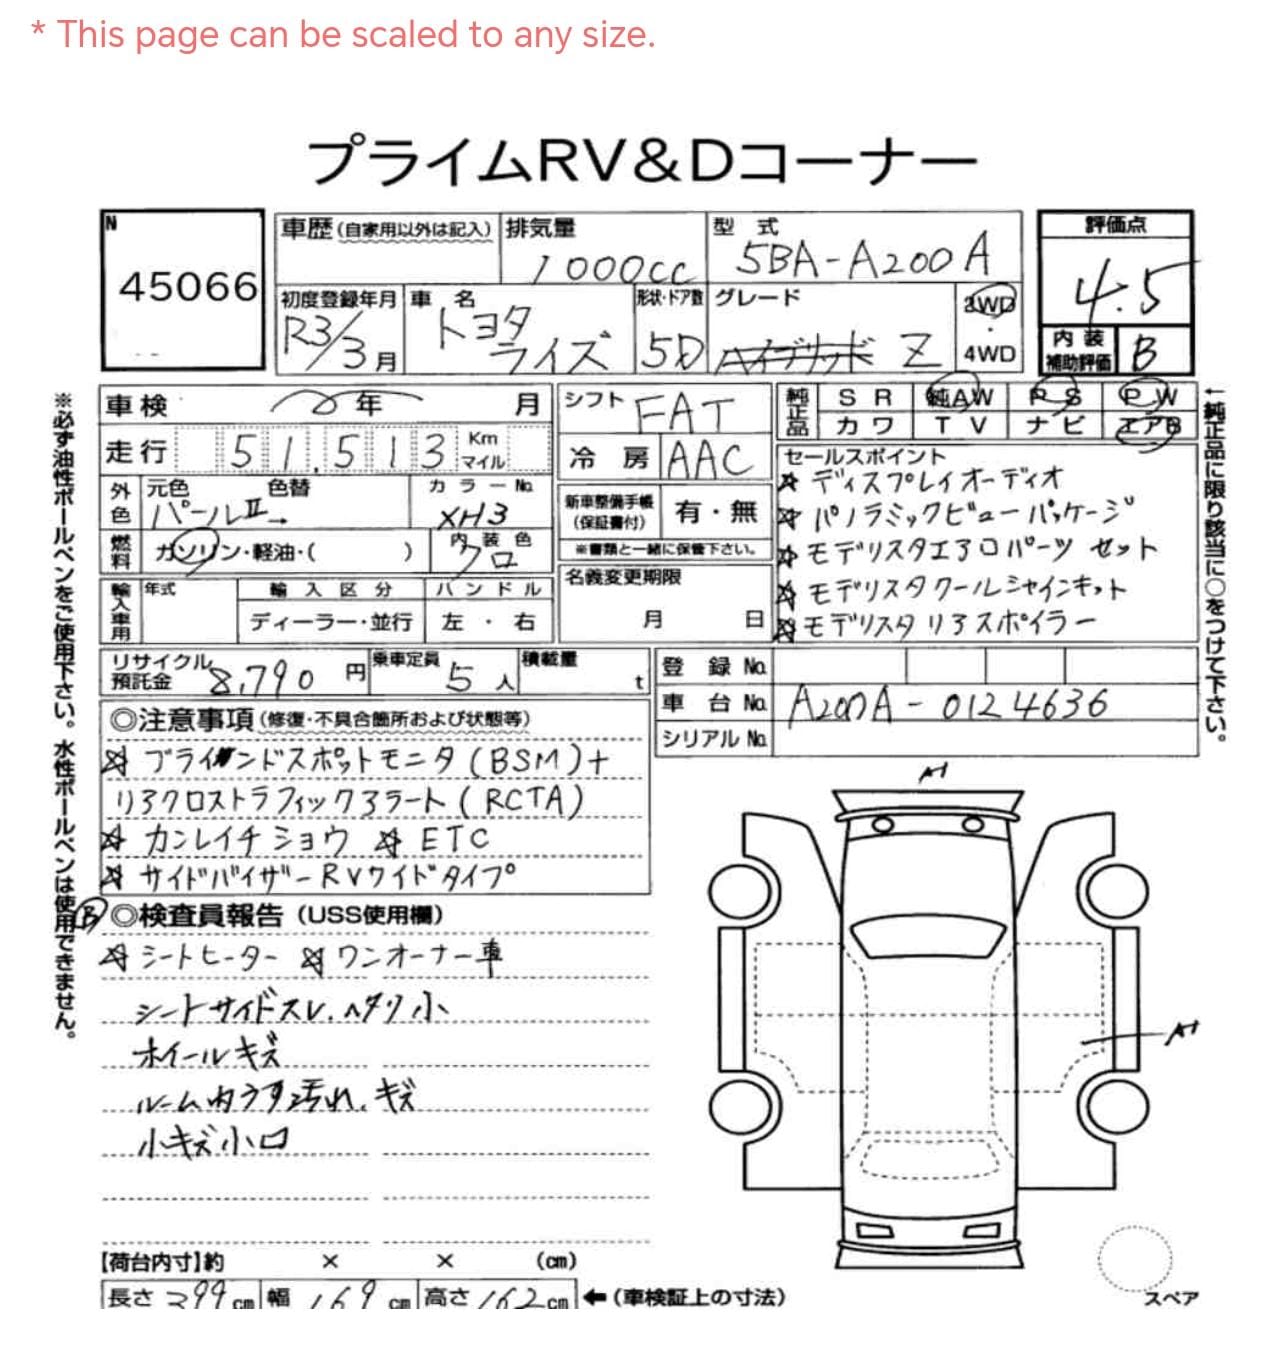 * This page can be scaled to any size.
プライムRV&Dコーナー
N
45066
車歴(自家用以外は記入)
排気量
1000cc
型 式
5BA-A200A
評価点
4.5
初度登録年月
R3/3月
車 名
トヨタ
ライズ
形状・ドア数
5D
グレード
ハイブリッド Z
2WD
・
4WD
内 装
補助評価
B
※必ず油性ボールペンをご使用下さい。水性ボールペンは使用できません。
車検 年 月
走行 51,513 Km
マイル
外色
元色 色替
パールII
カラーNo.
XH3
燃料
ガソリン・軽油・( )
内装色
クロ
輸入車用
年式
輸入区分
ディーラー・並行
ハンドル
左・右
シフト
FAT
冷房
AAC
新車整備手帳
(保証書付)
有・無
※書類と一緒に保管下さい。
名義変更期限
月 日
純正品
SR 純AW PS PW
カワ TV ナビ エアB
セールスポイント
☆ ディスプレイオーディオ
☆ パノラミックビューパッケージ
☆ モデリスタエアロパーツ セット
☆ モデリスタクールシャインキット
☆ モデリスタリアスポイラー
←純正品に限り該当に○をつけて下さい。
リサイクル
預託金
8,790 円
乗車定員
5人
積載量
t
登 録 No.
車 台 No.
A200A-0124636
シリアル No.
◎注意事項(修復・不具合箇所および状態等)
☆ ブラインドスポットモニタ(BSM)+
リアクロストラフィックアラート(RCTA)
☆ カンレイチショウ ☆ ETC
☆ サイドバイザーRVワイドタイプ
B
◎検査員報告(USS使用欄)
☆ シートヒーター ☆ ワンオーナー車
シートサイドスレ.ヘタリ小
ホイールキズ
ルーム内うす汚れ.キズ
小キズ小凹
A1
A1
【荷台内寸】約 × × (cm)
長さ 399 cm 幅 169 cm 高さ 162 cm ←(車検証上の寸法)
スペア